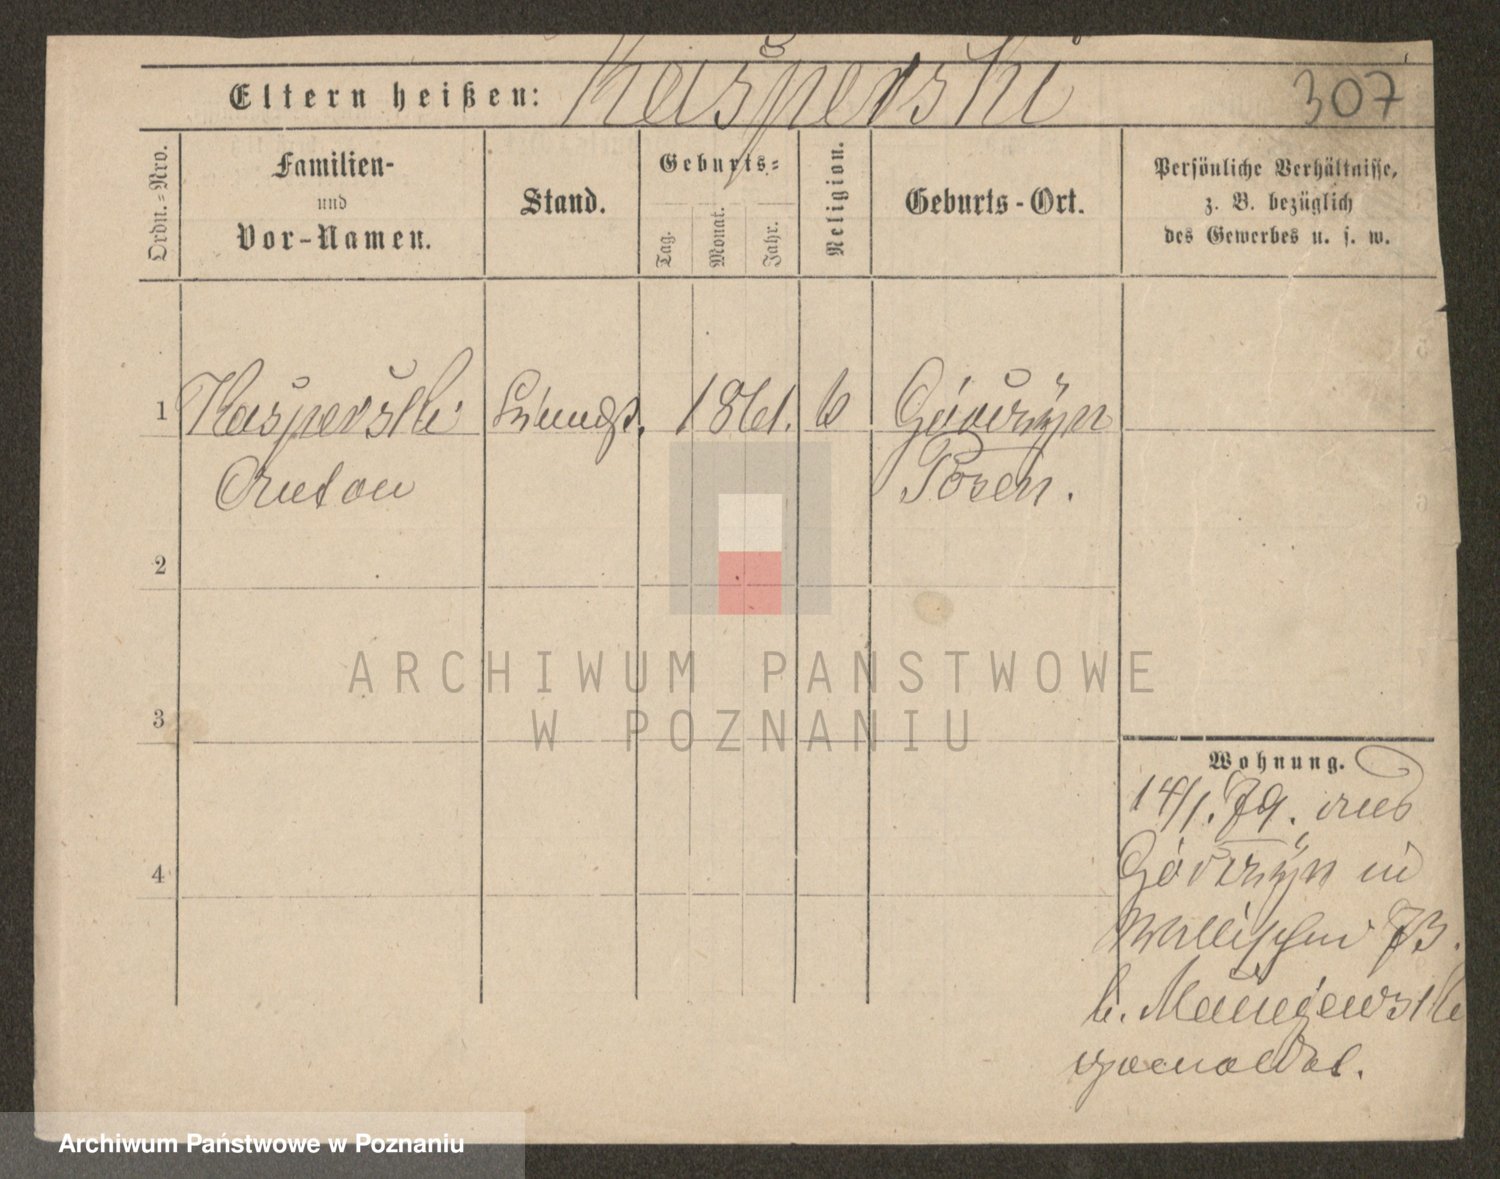 Eltern heißen: Kasperski 307
Ordn.-Nro.
Familien-
und
Vor-Namen.
Stand.
Geburts-
Tag.
Monat.
Jahr.
Religion.
Geburts-Ort.
Persönliche Verhältnisse,
z. B. bezüglich
des Gewerbes u. s. w.
1 Kasperski 1861.
Anton Posen.
2
3
4
Wohnung.
14/1. 79. aus
in
Wallischei 73.
b.
ARCHIWUM PAŃSTWOWE
W POZNANIU
Archiwum Państwowe w Poznaniu